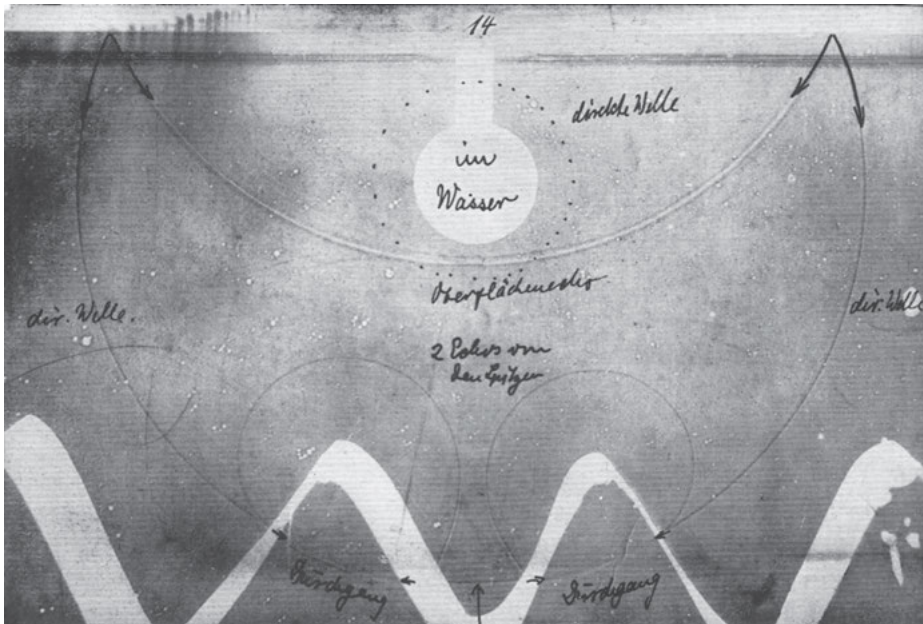 14
direkte Welle
im
Wasser
Oberflächenecho
dir. Welle.
dir. Welle
2 Echos von
den Spitzen
Durchgang
Durchgang